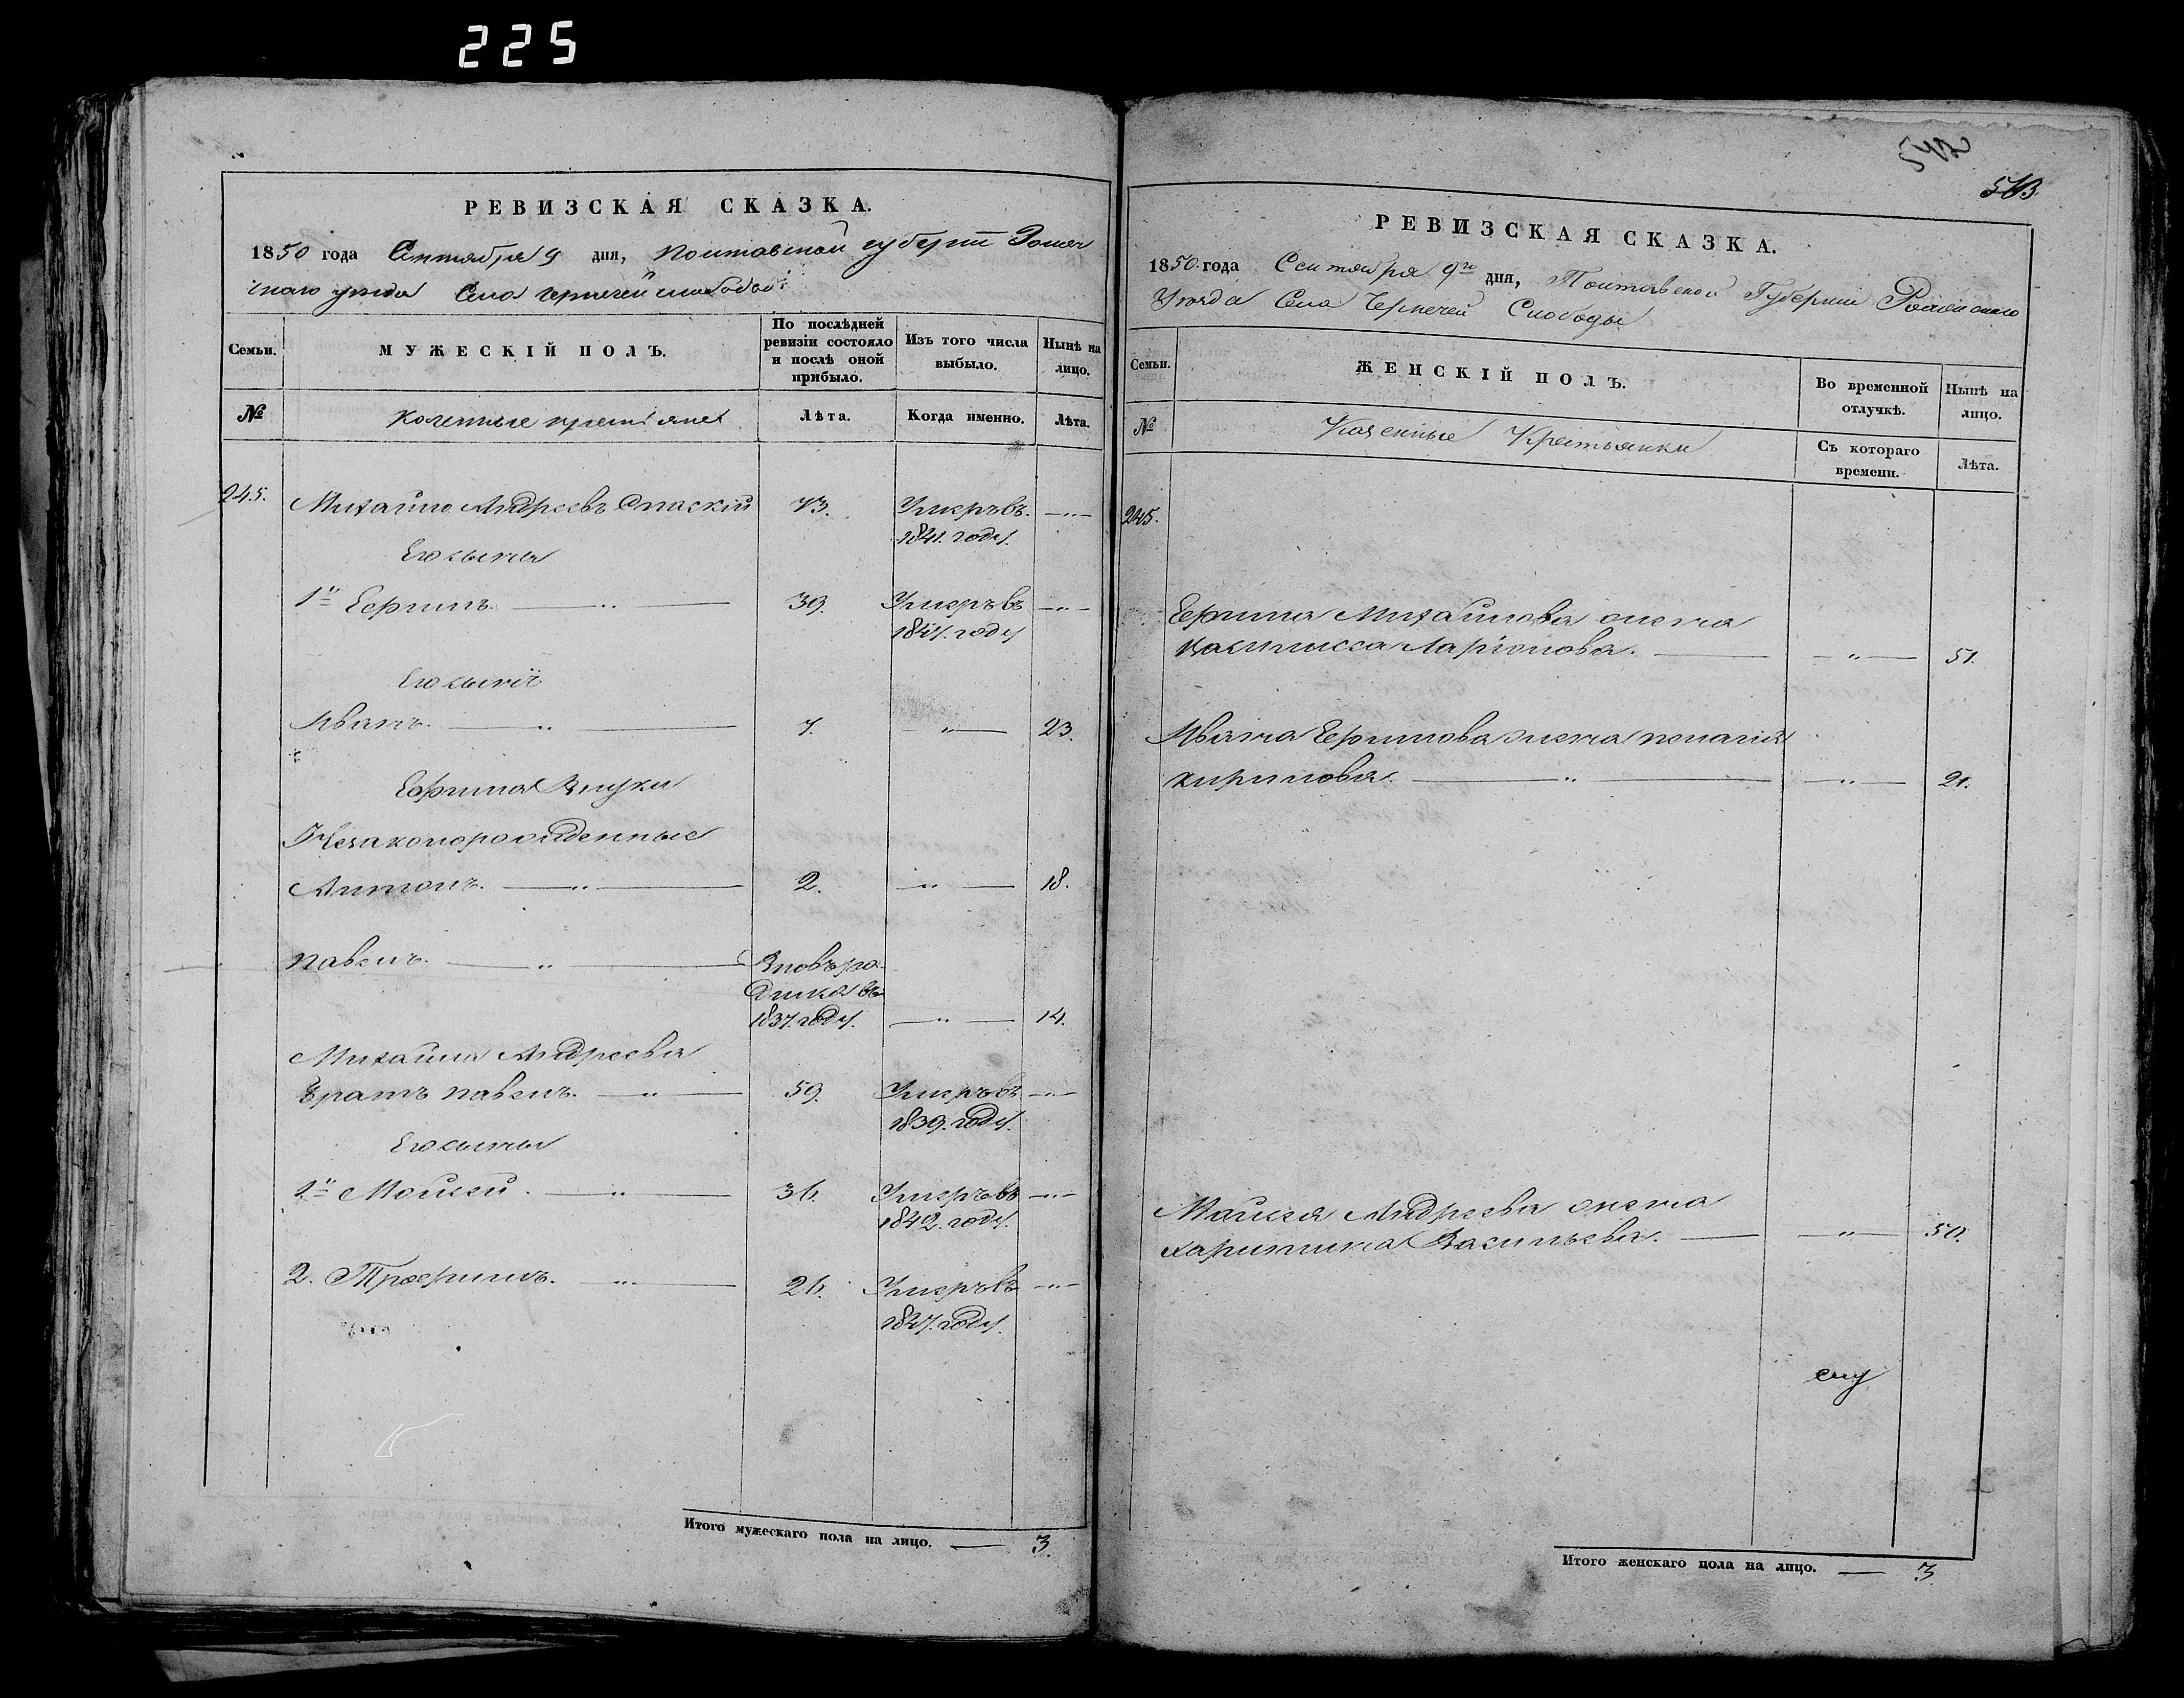 225
РЕВИЗСКАЯ СКАЗКА.
1850 года Сентября 9 дня, Полтавской губернiи Ромен
скаго уезда Села Чернечей слободы
Семьи.
МУЖЕСКІЙ ПОЛЪ.
По послѣдней ревизіи состояло и послѣ оной прибыло.
Изъ того числа выбыло.
Нынѣ на лицо.
№
Козенные крестьяне
Лѣта.
Когда именно.
Лѣта.
245. Михайло Андреевъ Спаскій 73. Умеръ въ —„—
1841. году.
Его сыны
1й Ефимъ. —„— 39. Умеръ въ —„—
году
Его сынъ
Иванъ. —„— 7. —„— 23.
Ефима Внуки
Незаконорожденные
Антонъ. —„— 2. —„— 18.
Павелъ. —„— Вновь ро
дился въ
1837. году. —„— 14.
Михайла Андреева
братъ Павелъ. —„— 59. Умеръ въ —„—
1839. году.
Его сыны
1й Мойсей. —„— 36. Умеръ въ —„—
1842. году.
2. Трофимъ. —„— 26. Умеръ въ —„—
1847. году.
Итого мужескаго пола на лицо. — 3.
542
543
РЕВИЗСКАЯ СКАЗКА.
1850. года Сентября 9го дня, Полтавской Губернии Роменскаго
Уезда Села Чернечей Слободы
Семьи.
ЖЕНСКІЙ ПОЛЪ.
Во временной отлучкѣ.
Нынѣ на лицо.
№
Козенные Крестьянки
Съ котораго времени.
Лѣта.
245.
Ефима Михайлова жена
Василисса Ларіонова. — —„— 51.
Ивана Ефимова жена Пелагия
Кирилова. —„— —„— 21.
Мойсея Андреева жена
Харитина Васильева. — —„— 50.
Итого женскаго пола на лицо. — 3.